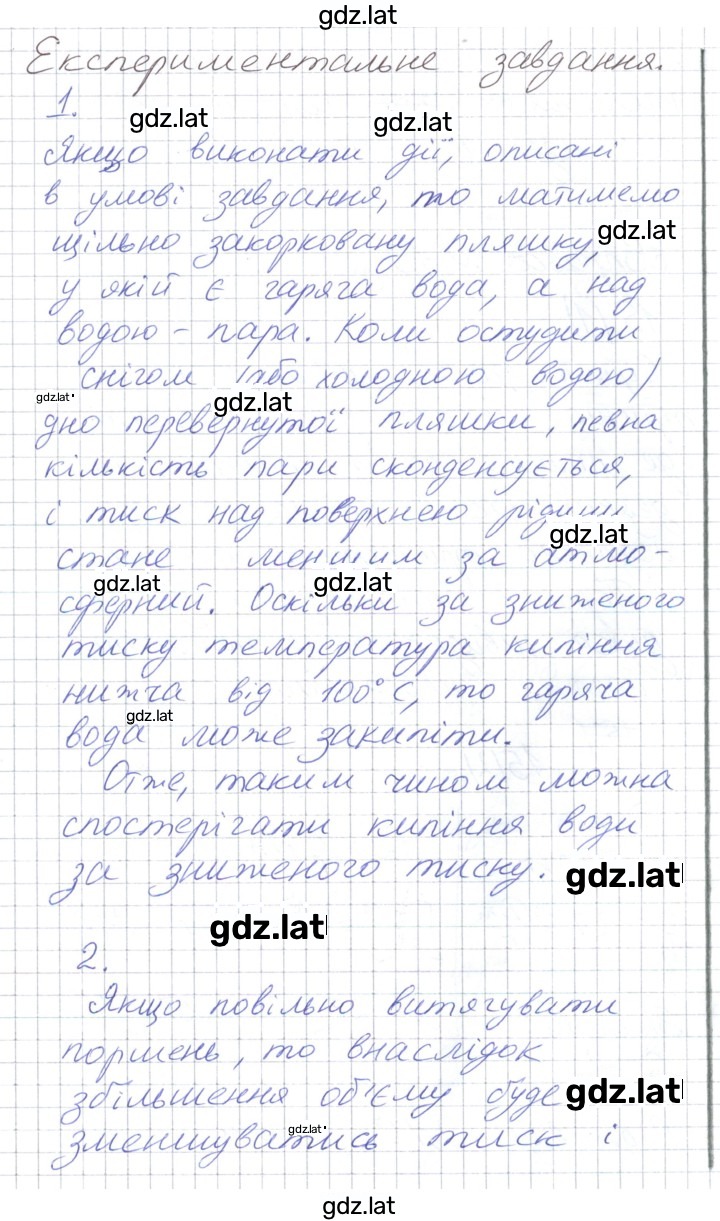 gdz.lat
Експериментальне завдання.
1.
gdz.lat gdz.lat
Якщо виконати дії, описані
в умові завдання, то матимемо
щільно закорковану пляшку, gdz.lat
у якій є гаряча вода, а над
водою - пара. Коли остудити
снігом (або холодною водою)
gdz.lat gdz.lat
дно перевернутої пляшки, певна
кількість пари сконденсується,
і тиск над поверхнею рідини
gdz.lat
стане меншим за атмо-
gdz.lat gdz.lat
сферний. Оскільки за зниженого
тиску температура кипіння
нижча від 100°C, то гаряча
gdz.lat
вода може закипіти.
Отже, таким чином можна
спостерігати кипіння води
за зниженого тиску. gdz.lat
gdz.lat
2.
Якщо повільно витягувати
поршень, то внаслідок
збільшення об'єму буде gdz.lat
gdz.lat
зменшуватись тиск і
gdz.lat